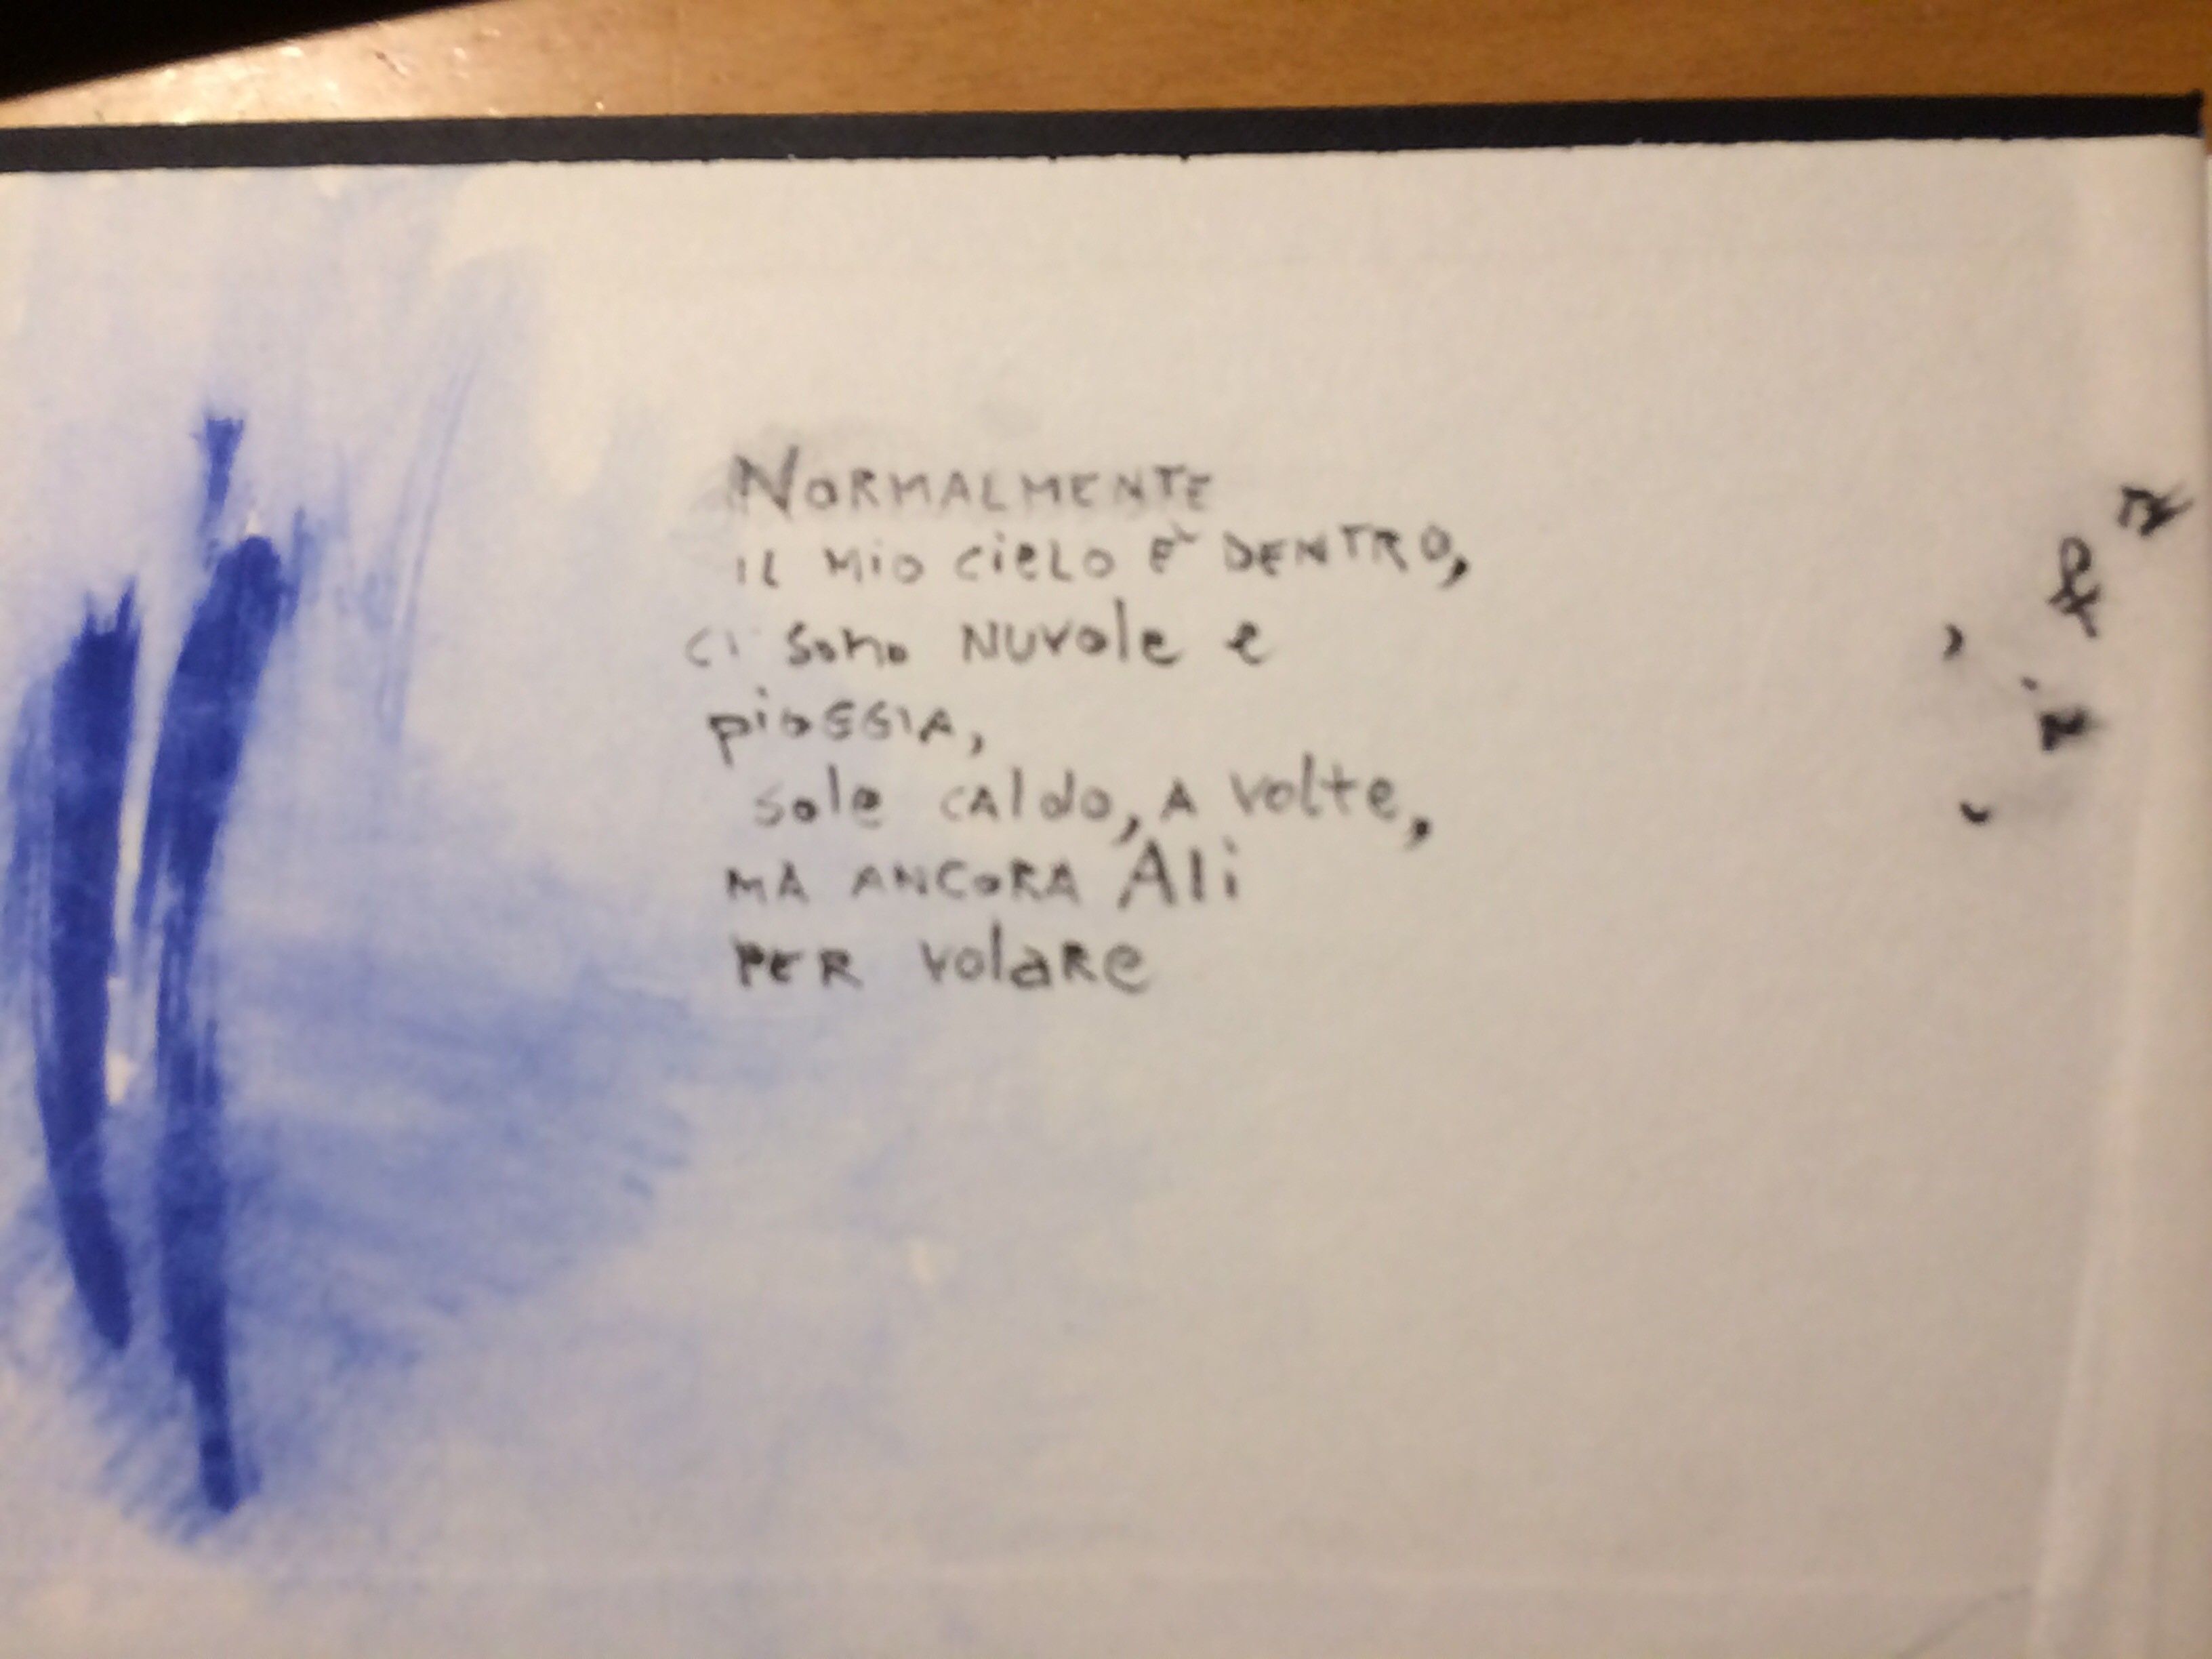 NORMALMENTE
il Mio cielo E' DENTRO,
ci sono NUVole e
pioGGIA,
sole CAldo, A Volte,
MA ANCORA Ali
PER volaRe